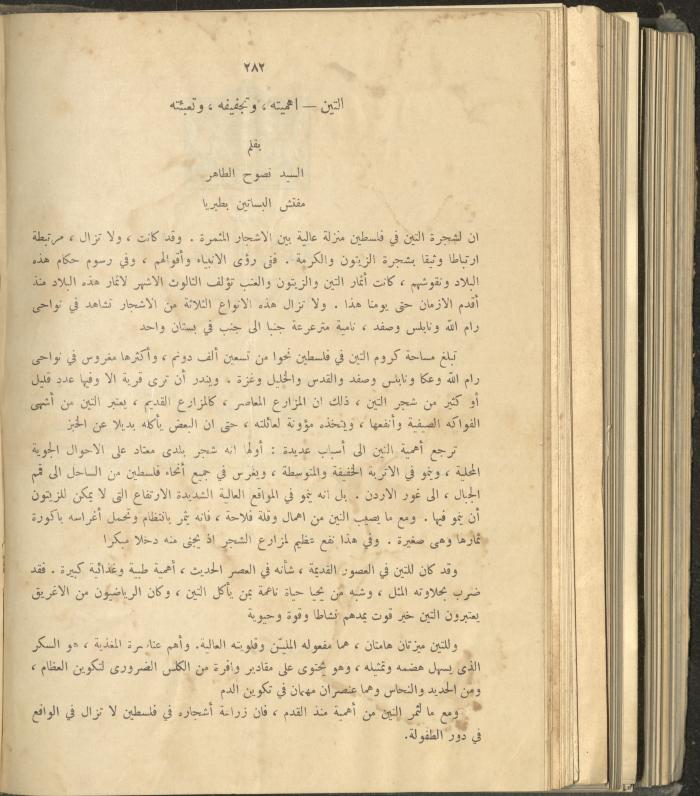 ٢٨٢
التين — اهميته ، وتجفيفه ، وتعبئته
بقلم
السيد نصوح الطاهر
مفتش البساتين بطبريا
ان لشجرة التين في فلسطين منزلة عالية بين الاشجار المثمرة . وقد كانت ، ولا تزال ، مرتبطة
ارتباطا وثيقا بشجرة الزيتون والكرمة . ففى رؤى الانبياء وأقوالهم ، وفي رسوم حكام هذه
البلاد ونقوشهم ، كانت أثمار التين والزيتون والعنب تؤلف الثالوث الاشهر لاثمار هذه البلاد منذ
أقدم الازمان حتى يومنا هذا . ولا تزال هذه الانواع الثلاثة من الاشجار تشاهد في نواحى
رام الله ونابلس وصفد ، نامية مترعرعة جنبا الى جنب في بستان واحد
تبلغ مساحة كروم التين في فلسطين نحوا من تسعين ألف دونم ، وأكثرها مغروس في نواحى
رام الله وعكا ونابلس وصفد والقدس والخليل وغزة . ويندر أن ترى قرية الا وفيها عدد قليل
أو كثير من شجر التين ، ذلك ان المزارع المعاصر ، كالمزارع القديم ، يعتبر التين من أشهى
الفواكه الصيفية وأنفعها ، ويتخذه مؤونة لعائلته ، حتى ان البعض يأكله بديلا عن الخبز
ترجع أهمية التين الى أسباب عديدة : أولها انه شجر بلدى معتاد على الاحوال الجوية
المحلية ، وينمو في الاتربة الخفيفة والمتوسطة ، ويغرس في جميع أنحاء فلسطين من الساحل الى قمم
الجبال ، الى غور الاردن . بل انه ينمو في المواقع العالية الشديدة الارتفاع التى لا يمكن للزيتون
أن ينمو فيها . ومع ما يصيب التين من اهمال وقلة فلاحة ، فانه يثمر بانتظام وتحمل أغراسه باكورة
ثمارها وهى صغيرة . وفي هذا نفع عظيم لمزارع الشجر اذ يجنى منه دخلا مبكرا
وقد كان للتين في العصور القديمة ، شأنه في العصر الحديث ، أهمية طبية وغذائية كبيرة . فقد
ضرب بحلاوته المثل ، وشبه من يحيا حياة ناعمة بمن يأكل التين ، وكان الرياضيون من الاغريق
يعتبرون التين خير قوت يمدهم نشاطا وقوة وحيوية
وللتين ميزتان هامتان ، هما مفعوله الملين وقلويته العالية. وأهم عناصره المغذية ، هو السكر
الذى يسهل هضمه وتمثيله ، وهو يحتوى على مقادير وافرة من الكلس الضرورى لتكوين العظام ،
ومن الحديد والنحاس وهما عنصران مهمان في تكوين الدم
ومع ما لثمر التين من أهمية منذ القدم ، فان زراعة أشجاره في فلسطين لا تزال في الواقع
في دور الطفولة.